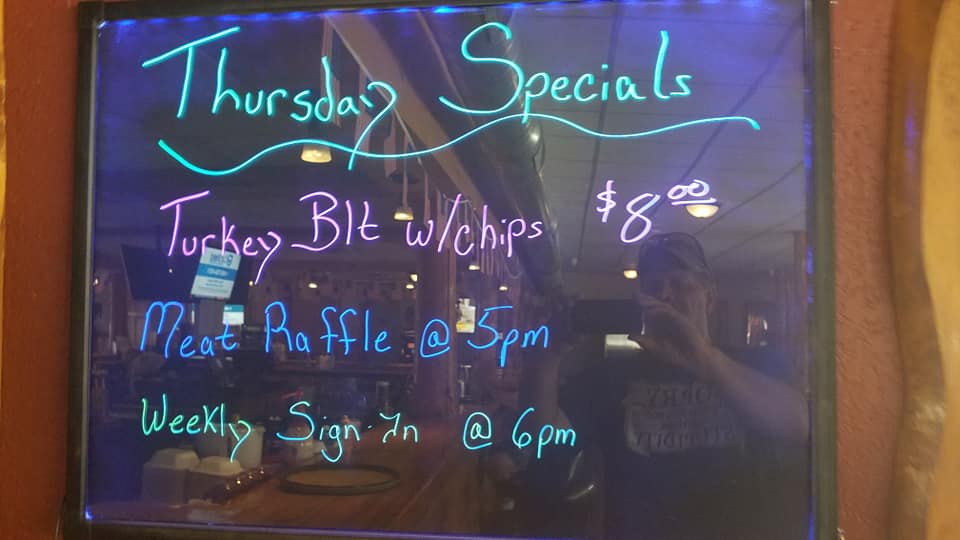 Thursday Specials
Turkey Blt w/chips $8.00
Meat Raffle @ 5pm
Weekly Sign-In @ 6pm